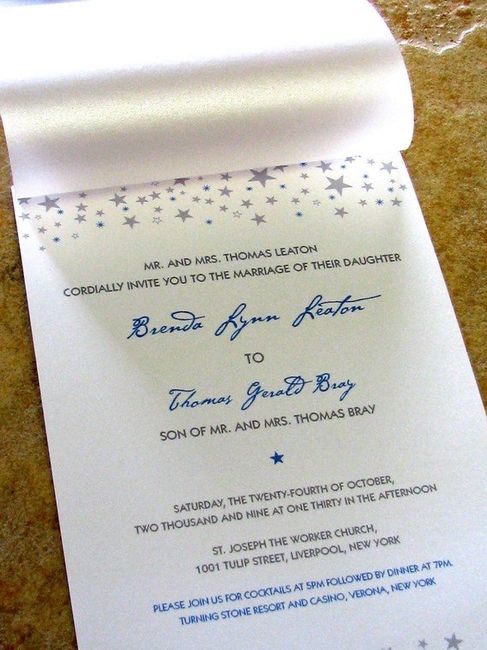 MR. AND MRS. THOMAS LEATON
CORDIALLY INVITE YOU TO THE MARRIAGE OF THEIR DAUGHTER
Brenda Lynn Leaton
TO
Thomas Gerald Bray
SON OF MR. AND MRS. THOMAS BRAY
SATURDAY, THE TWENTY-FOURTH OF OCTOBER,
TWO THOUSAND AND NINE AT ONE THIRTY IN THE AFTERNOON
ST. JOSEPH THE WORKER CHURCH,
1001 TULIP STREET, LIVERPOOL, NEW YORK
PLEASE JOIN US FOR COCKTAILS AT 5PM FOLLOWED BY DINNER AT 7PM.
TURNING STONE RESORT AND CASINO, VERONA, NEW YORK